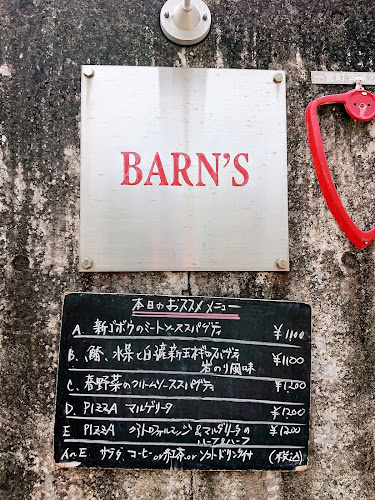 BARN'S
本日のおススメメニュー
A. 新ゴボウのミートソーススパゲティ ¥1100
B. 鰆、水菜と白滝新玉ネギのスパゲティ ¥1100
岩のり風味
C. 春野菜のクリームソーススパゲティ ¥1,200
D. PIZZA マルゲリータ ¥1200
E PIZZA クワトロフォルマッジ&マルゲリータの ¥1200
ハーフ&ハーフ
A〜E. サラダ、コーヒー or 紅茶 or ソフトドリンク付 (税込)